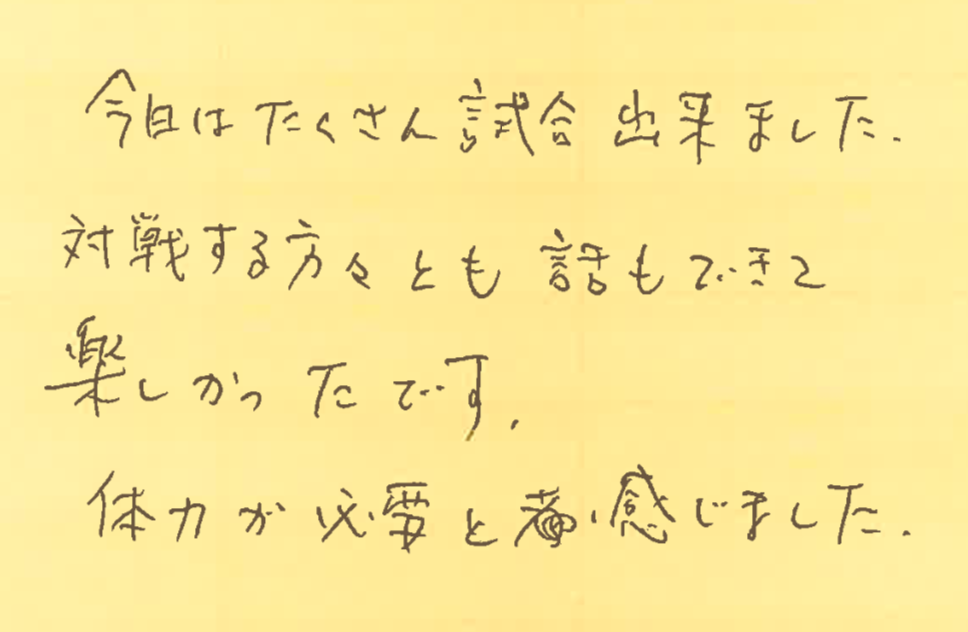 今日はたくさん試合出来ました.
対戦する方々とも話もできて
楽しかったです.
体力が必要と感じました.